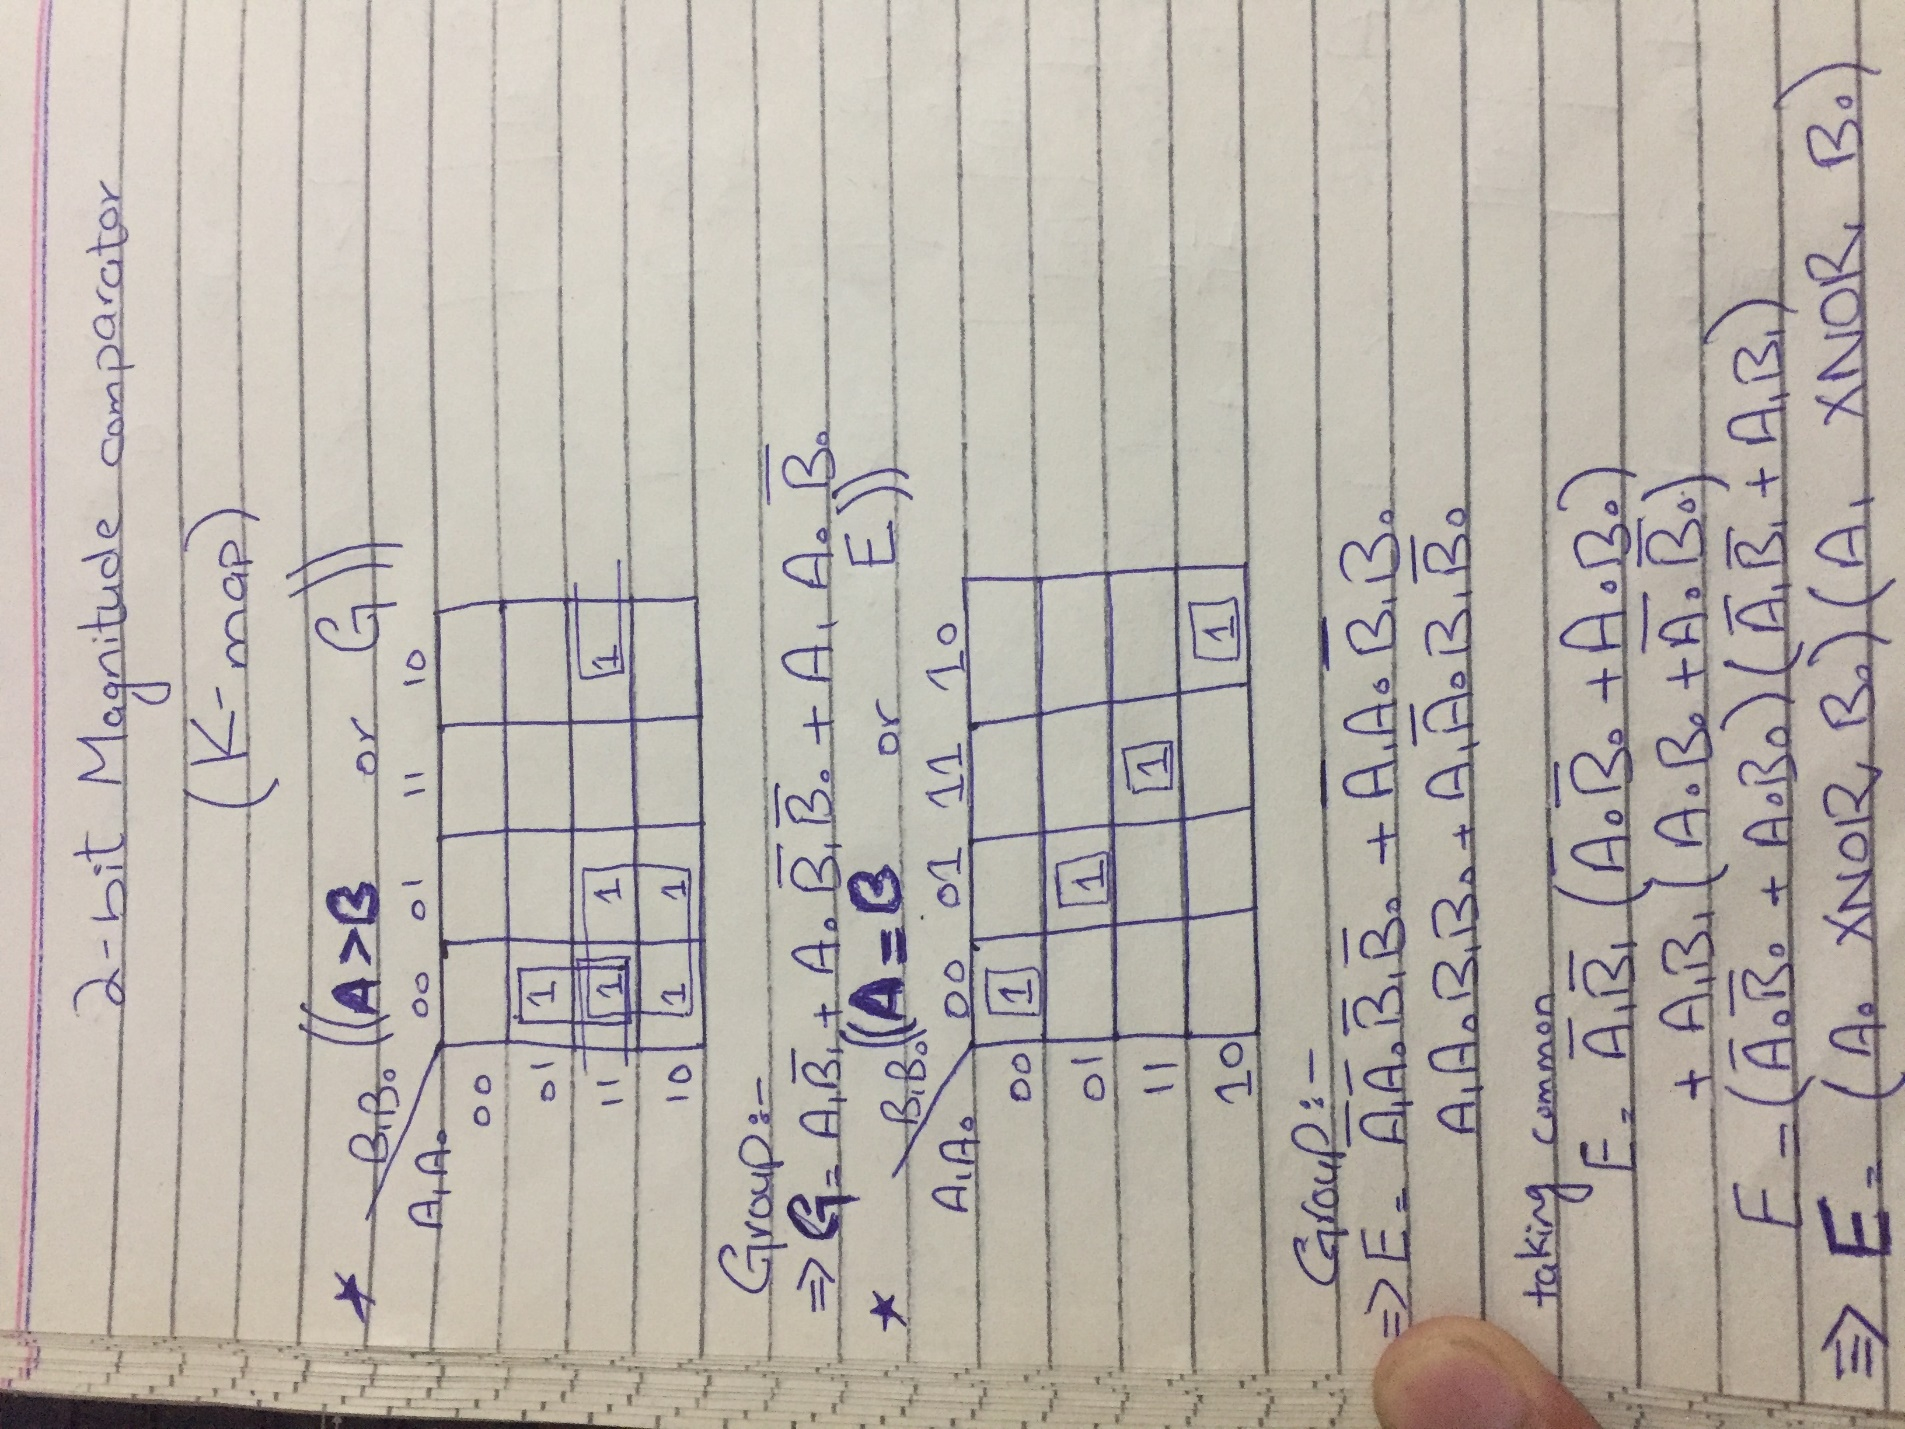 2-bit Magnitude comparator
(K-map)
★ ((A>B or G))
B₁B₀ 00 01 11 10
A₁A₀
00
01 1
11 1 1 1
10 1 1
Group:-
⇒ G = A₁B̅₁ + A₀B̅₁B̅₀ + A₁A₀B̅₀
★ ((A=B or E))
B₁B₀ 00 01 11 10
A₁A₀
00 1
01 1
11 1
10 1
Group:-
⇒ E = A̅₁A̅₀B̅₁B̅₀ + A̅₁A₀B̅₁B₀
A₁A₀B₁B₀ + A₁A̅₀B₁B̅₀
taking common
E = A̅₁B̅₁(A̅₀B̅₀ + A₀B₀)
+ A₁B₁(A₀B₀ + A̅₀B̅₀)
E = (A̅₀B̅₀ + A₀B₀)(A̅₁B̅₁ + A₁B₁)
⇒ E = (A₀ XNOR B₀)(A₁ XNOR B₀)